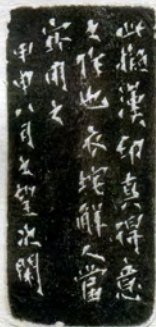 此擬漢印真得意
之作也衣垞解人當
寶用之
甲申八月之望次閑